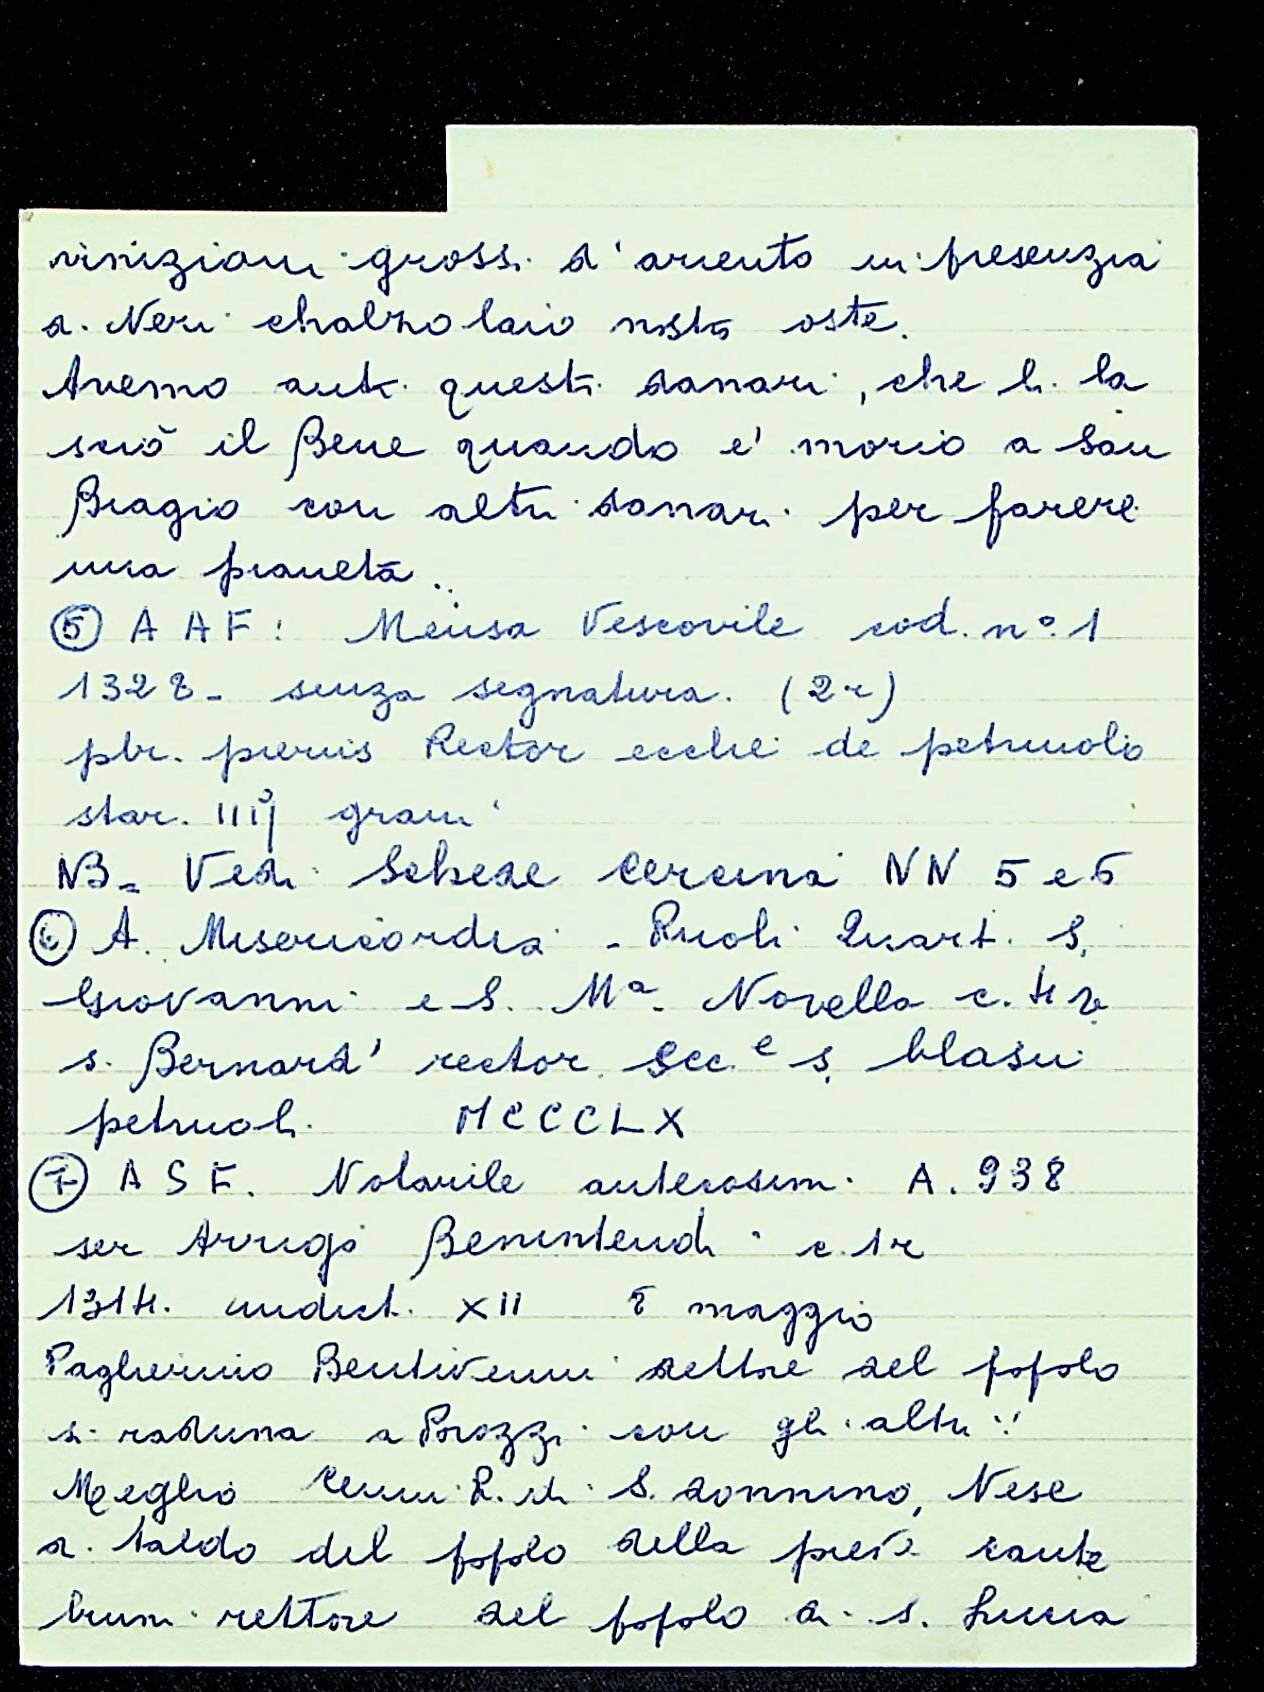 viniziani grossi d'ariento in presenzia
di Neri chalzolaio nostō oste.
Avemo auti questi danari, che li la
sciò il Bene quando e' morio a San
Biagio con altri danari per farere
una pianetā.
⑤ A A F: Mensa Vescovile cod. n°. 1
1328 - senza segnatura. (2r)
pbr. pierus Rector ecche de petriuolo
star. IIIj grani
NB = Vedi Schede Cercina NN 5 e 6
⑥ A. Misericordia - Ruoli Quart. S.
Giovanni e S. Mª. Novella c. 42
s. Bernard' rector. Ecc.e s. blasii
petriuoli. MCCCLX
⑦ A S F. Notarile antecosim. A. 938
ser Arrigo Benintendi c. 1r
1314. indict. XII 8 maggio
Paglierino Bentivenni rettore del popolo
si raduna a Brozzi con gli altri:
Meglio Cenni R. di S. Donnino, Nese
di taldo del popolo della pieve cante
bruni rettore del popolo di s. Lucia